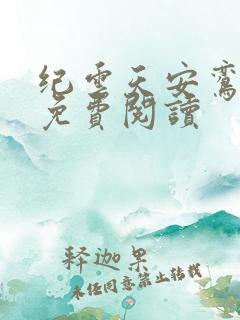 纪云天安鸾
免費閱讀
释迦果
未经同意禁止转载